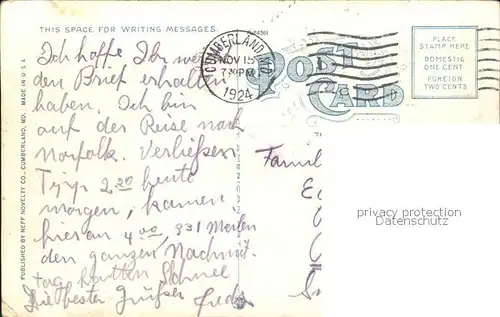 THIS SPACE FOR WRITING MESSAGES
CUMBERLAND, MD.
NOV 15
7 30 PM
1924
POST CARD
PLACE
STAMP HERE
DOMESTIC
ONE CENT
FOREIGN
TWO CENTS
Ich hoffe Ihr
den Brief erhalten
haben. Ich bin
auf der Reise nach
Norfolk. Verließen
2 30 heute
morgen, kamen
hier an 4 00, 931 Meilen
den ganzen Nachmit-
tag hatten Schnee
Die besten Grüße
Famil
privacy protection
www.oldthing.com
PUBLISHED BY NEFF NOVELTY CO., CUMBERLAND, MD. MADE IN U.S.A.